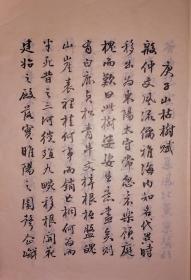 庾子山枯樹賦
殷仲文風流儒雅海內知名代異時
移出為東陽太守常忽忽不樂顧庭
槐而歎曰此樹婆娑生意盡矣至
如白鹿貞松青牛文梓根柢盤魄
山崖表裏桂何事而銷亡桐何為而
半死昔之三河徙植九畹移根開花
建始之殿落實睢陽之園聲含嶰